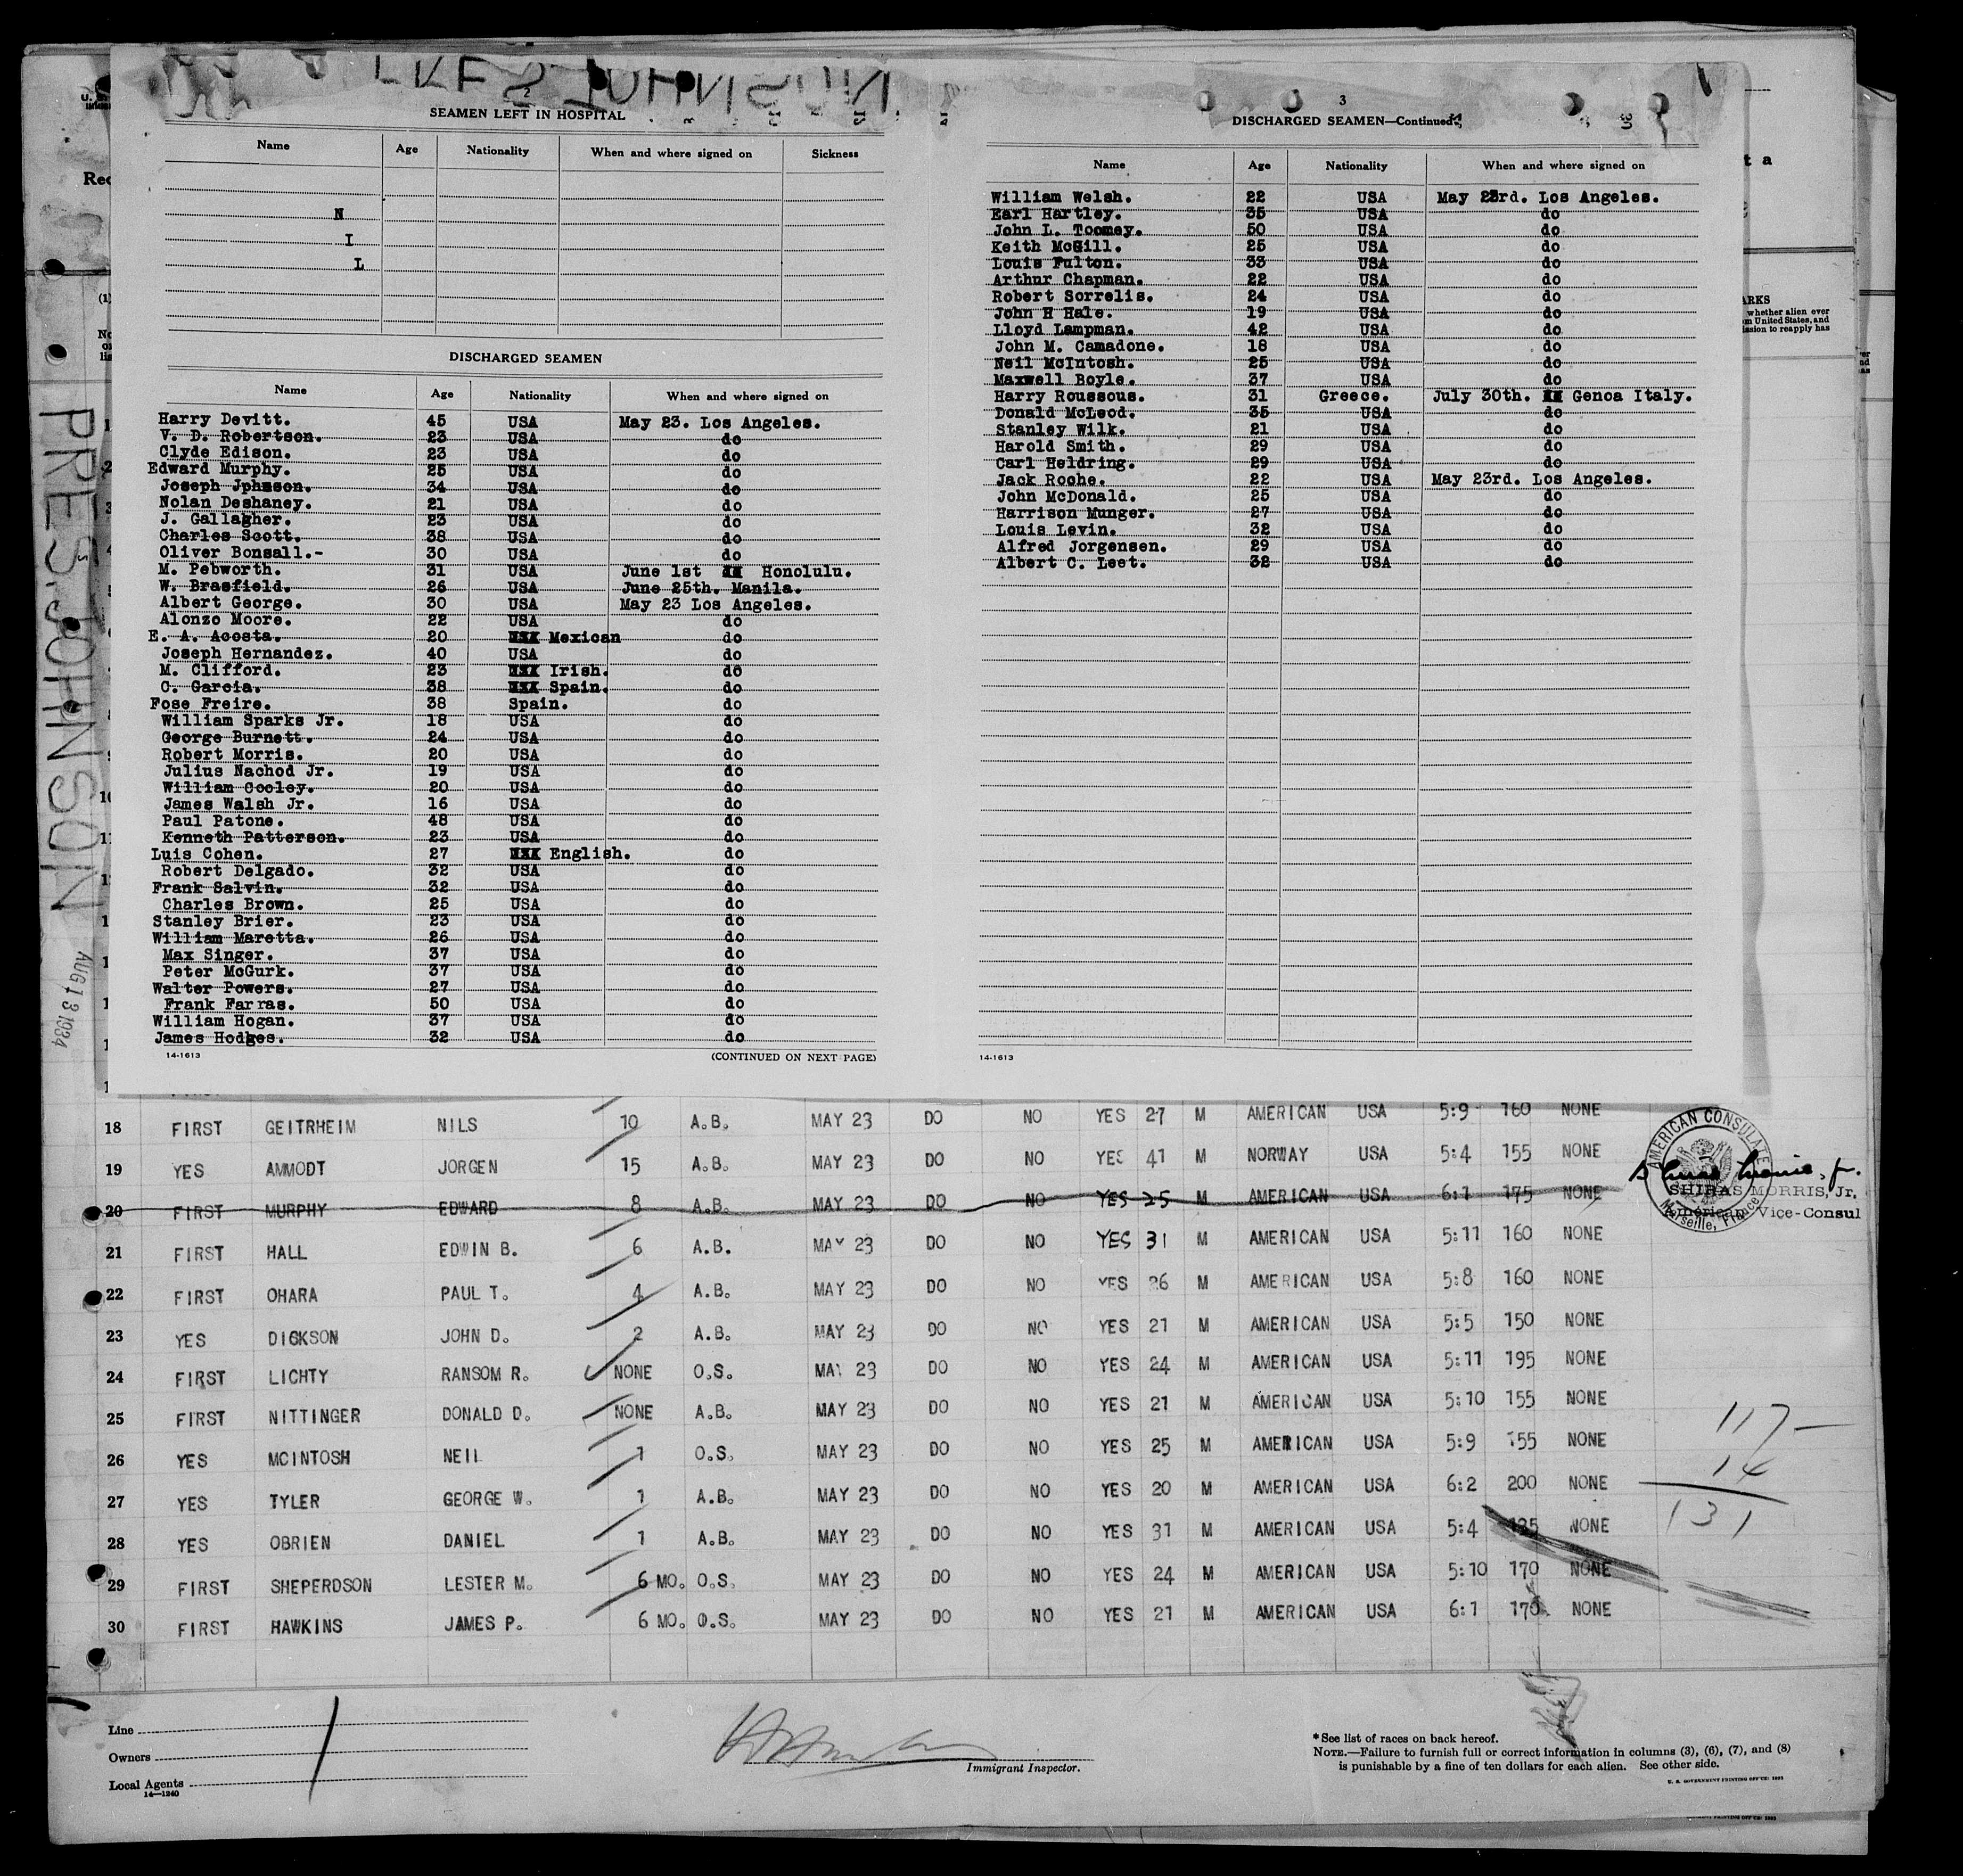 PRES JOHNSON
2
SEAMEN LEFT IN HOSPITAL
Name Age Nationality When and where signed on Sickness
N
I
L
DISCHARGED SEAMEN
Name Age Nationality When and where signed on
Harry Devitt. 45 USA May 23. Los Angeles.
V. D. Robertson. 23 USA do
Clyde Edison. 23 USA do
Edward Murphy. 25 USA do
Joseph Jphnson. 34 USA do
Nolan Deshaney. 21 USA do
J. Gallagher. 23 USA do
Charles Scott. 38 USA do
Oliver Bonsall.- 30 USA do
M. Pebworth. 31 USA June 1st Honolulu.
W. Brasfield. 26 USA June 25th. Manila.
Albert George. 30 USA May 23 Los Angeles.
Alonzo Moore. 22 USA do
E. A. Acosta. 20 Mexican do
Joseph Hernandez. 40 USA do
M. Clifford. 23 Irish. do
C. Garcia. 38 Spain. do
Fose Freire. 38 Spain. do
William Sparks Jr. 18 USA do
George Burnett. 24 USA do
Robert Morris. 20 USA do
Julius Nachod Jr. 19 USA do
William Cooley. 20 USA do
James Walsh Jr. 16 USA do
Paul Patone. 48 USA do
Kenneth Patterson. 23 USA do
Luis Cohen. 27 English. do
Robert Delgado. 32 USA do
Frank Salvin. 32 USA do
Charles Brown. 25 USA do
Stanley Brier. 23 USA do
William Maretta. 26 USA do
Max Singer. 37 USA do
Peter McGurk. 37 USA do
Walter Powers. 27 USA do
Frank Farras. 50 USA do
William Hogan. 37 USA do
James Hodges. 32 USA do
14-1613 (CONTINUED ON NEXT PAGE)
3
DISCHARGED SEAMEN—Continued
Name Age Nationality When and where signed on
William Welsh. 22 USA May 23rd. Los Angeles.
Earl Hartley. 35 USA do
John L. Toomey. 50 USA do
Keith McGill. 25 USA do
Louis Fulton. 33 USA do
Arthur Chapman. 22 USA do
Robert Sorrelis. 24 USA do
John H Hale. 19 USA do
Lloyd Lampman. 42 USA do
John M. Camadone. 18 USA do
Neil McIntosh. 25 USA do
Maxwell Boyle. 37 USA do
Harry Roussous. 31 Greece. July 30th. Genoa Italy.
Donald McLeod. 35 USA do
Stanley Wilk. 21 USA do
Harold Smith. 29 USA do
Carl Heldring. 29 USA do
Jack Roche. 22 USA May 23rd. Los Angeles.
John McDonald. 25 USA do
Harrison Munger. 27 USA do
Louis Levin. 32 USA do
Alfred Jorgensen. 29 USA do
Albert C. Leet. 32 USA do
14-1613
PRES. JOHNSON
AUG 13 1934
18 FIRST GEITRHEIM NILS 10 A.B. MAY 23 DO NO YES 27 M AMERICAN USA 5:9 160 NONE
19 YES AMMODT JORGEN 15 A.B. MAY 23 DO NO YES 41 M NORWAY USA 5:4 155 NONE
20 FIRST MURPHY EDWARD 8 A.B. MAY 23 DO NO YES 25 M AMERICAN USA 6:1 175 NONE
21 FIRST HALL EDWIN B. 6 A.B. MAY 23 DO NO YES 31 M AMERICAN USA 5:11 160 NONE
22 FIRST OHARA PAUL T. 4 A.B. MAY 23 DO NO YES 26 M AMERICAN USA 5:8 160 NONE
23 YES DICKSON JOHN D. 2 A.B. MAY 23 DO NO YES 21 M AMERICAN USA 5:5 150 NONE
24 FIRST LICHTY RANSOM R. NONE O.S. MAY 23 DO NO YES 24 M AMERICAN USA 5:11 195 NONE
25 FIRST NITTINGER DONALD D. NONE A.B. MAY 23 DO NO YES 21 M AMERICAN USA 5:10 155 NONE
26 YES MCINTOSH NEIL 1 O.S. MAY 23 DO NO YES 25 M AMERICAN USA 5:9 155 NONE
27 YES TYLER GEORGE W. 1 A.B. MAY 23 DO NO YES 20 M AMERICAN USA 6:2 200 NONE
28 YES OBRIEN DANIEL 1 A.B. MAY 23 DO NO YES 31 M AMERICAN USA 5:4 135 NONE
29 FIRST SHEPERDSON LESTER M. 6 MO. O.S. MAY 23 DO NO YES 24 M AMERICAN USA 5:10 170 NONE
30 FIRST HAWKINS JAMES P. 6 MO. O.S. MAY 23 DO NO YES 21 M AMERICAN USA 6:1 170 NONE
AMERICAN CONSULATE
Marseille, France
SHIRAS MORRIS, Jr.
American Vice-Consul
117
14
131
Line
Owners
Local Agents
14—1240
Immigrant Inspector.
*See list of races on back hereof.
NOTE.—Failure to furnish full or correct information in columns (3), (6), (7), and (8)
is punishable by a fine of ten dollars for each alien. See other side.